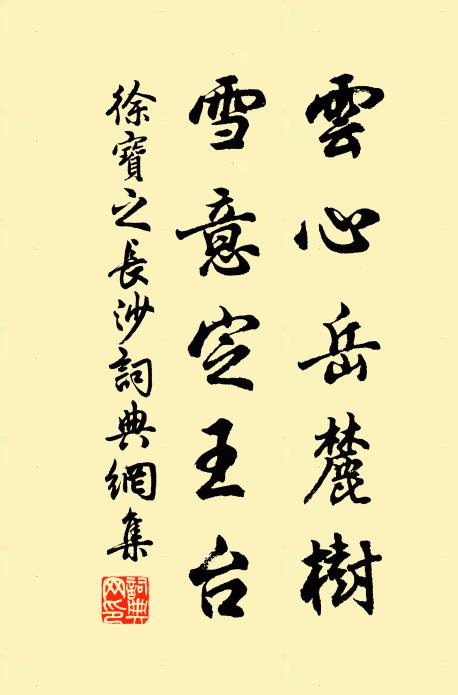 雲心岳麓樹
雪意定王台
徐寶之長沙詞典網集
詞典網印